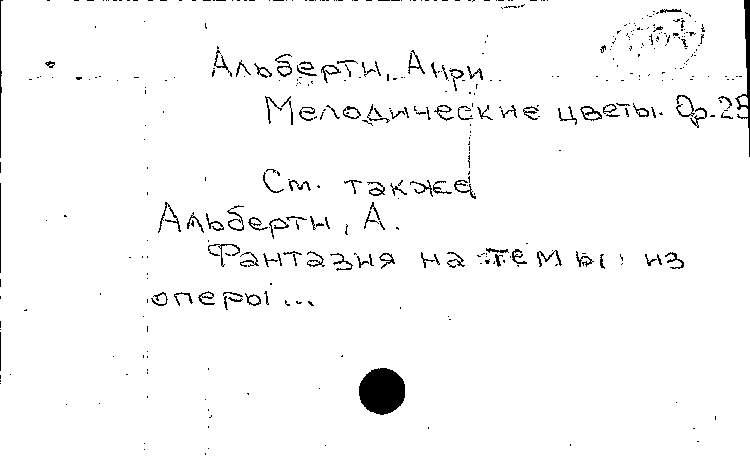 Альберти, Анри
Мелодические цветы. Op. 25
См. также
Альберти, А.
Фантазия на темы из
оперы...